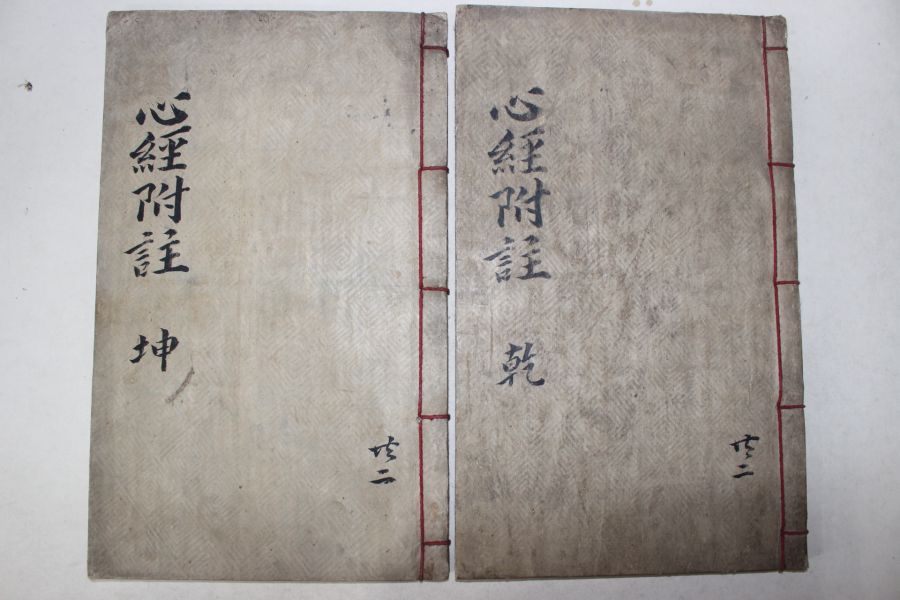 心經附註 乾
共二
心經附註 坤
共二